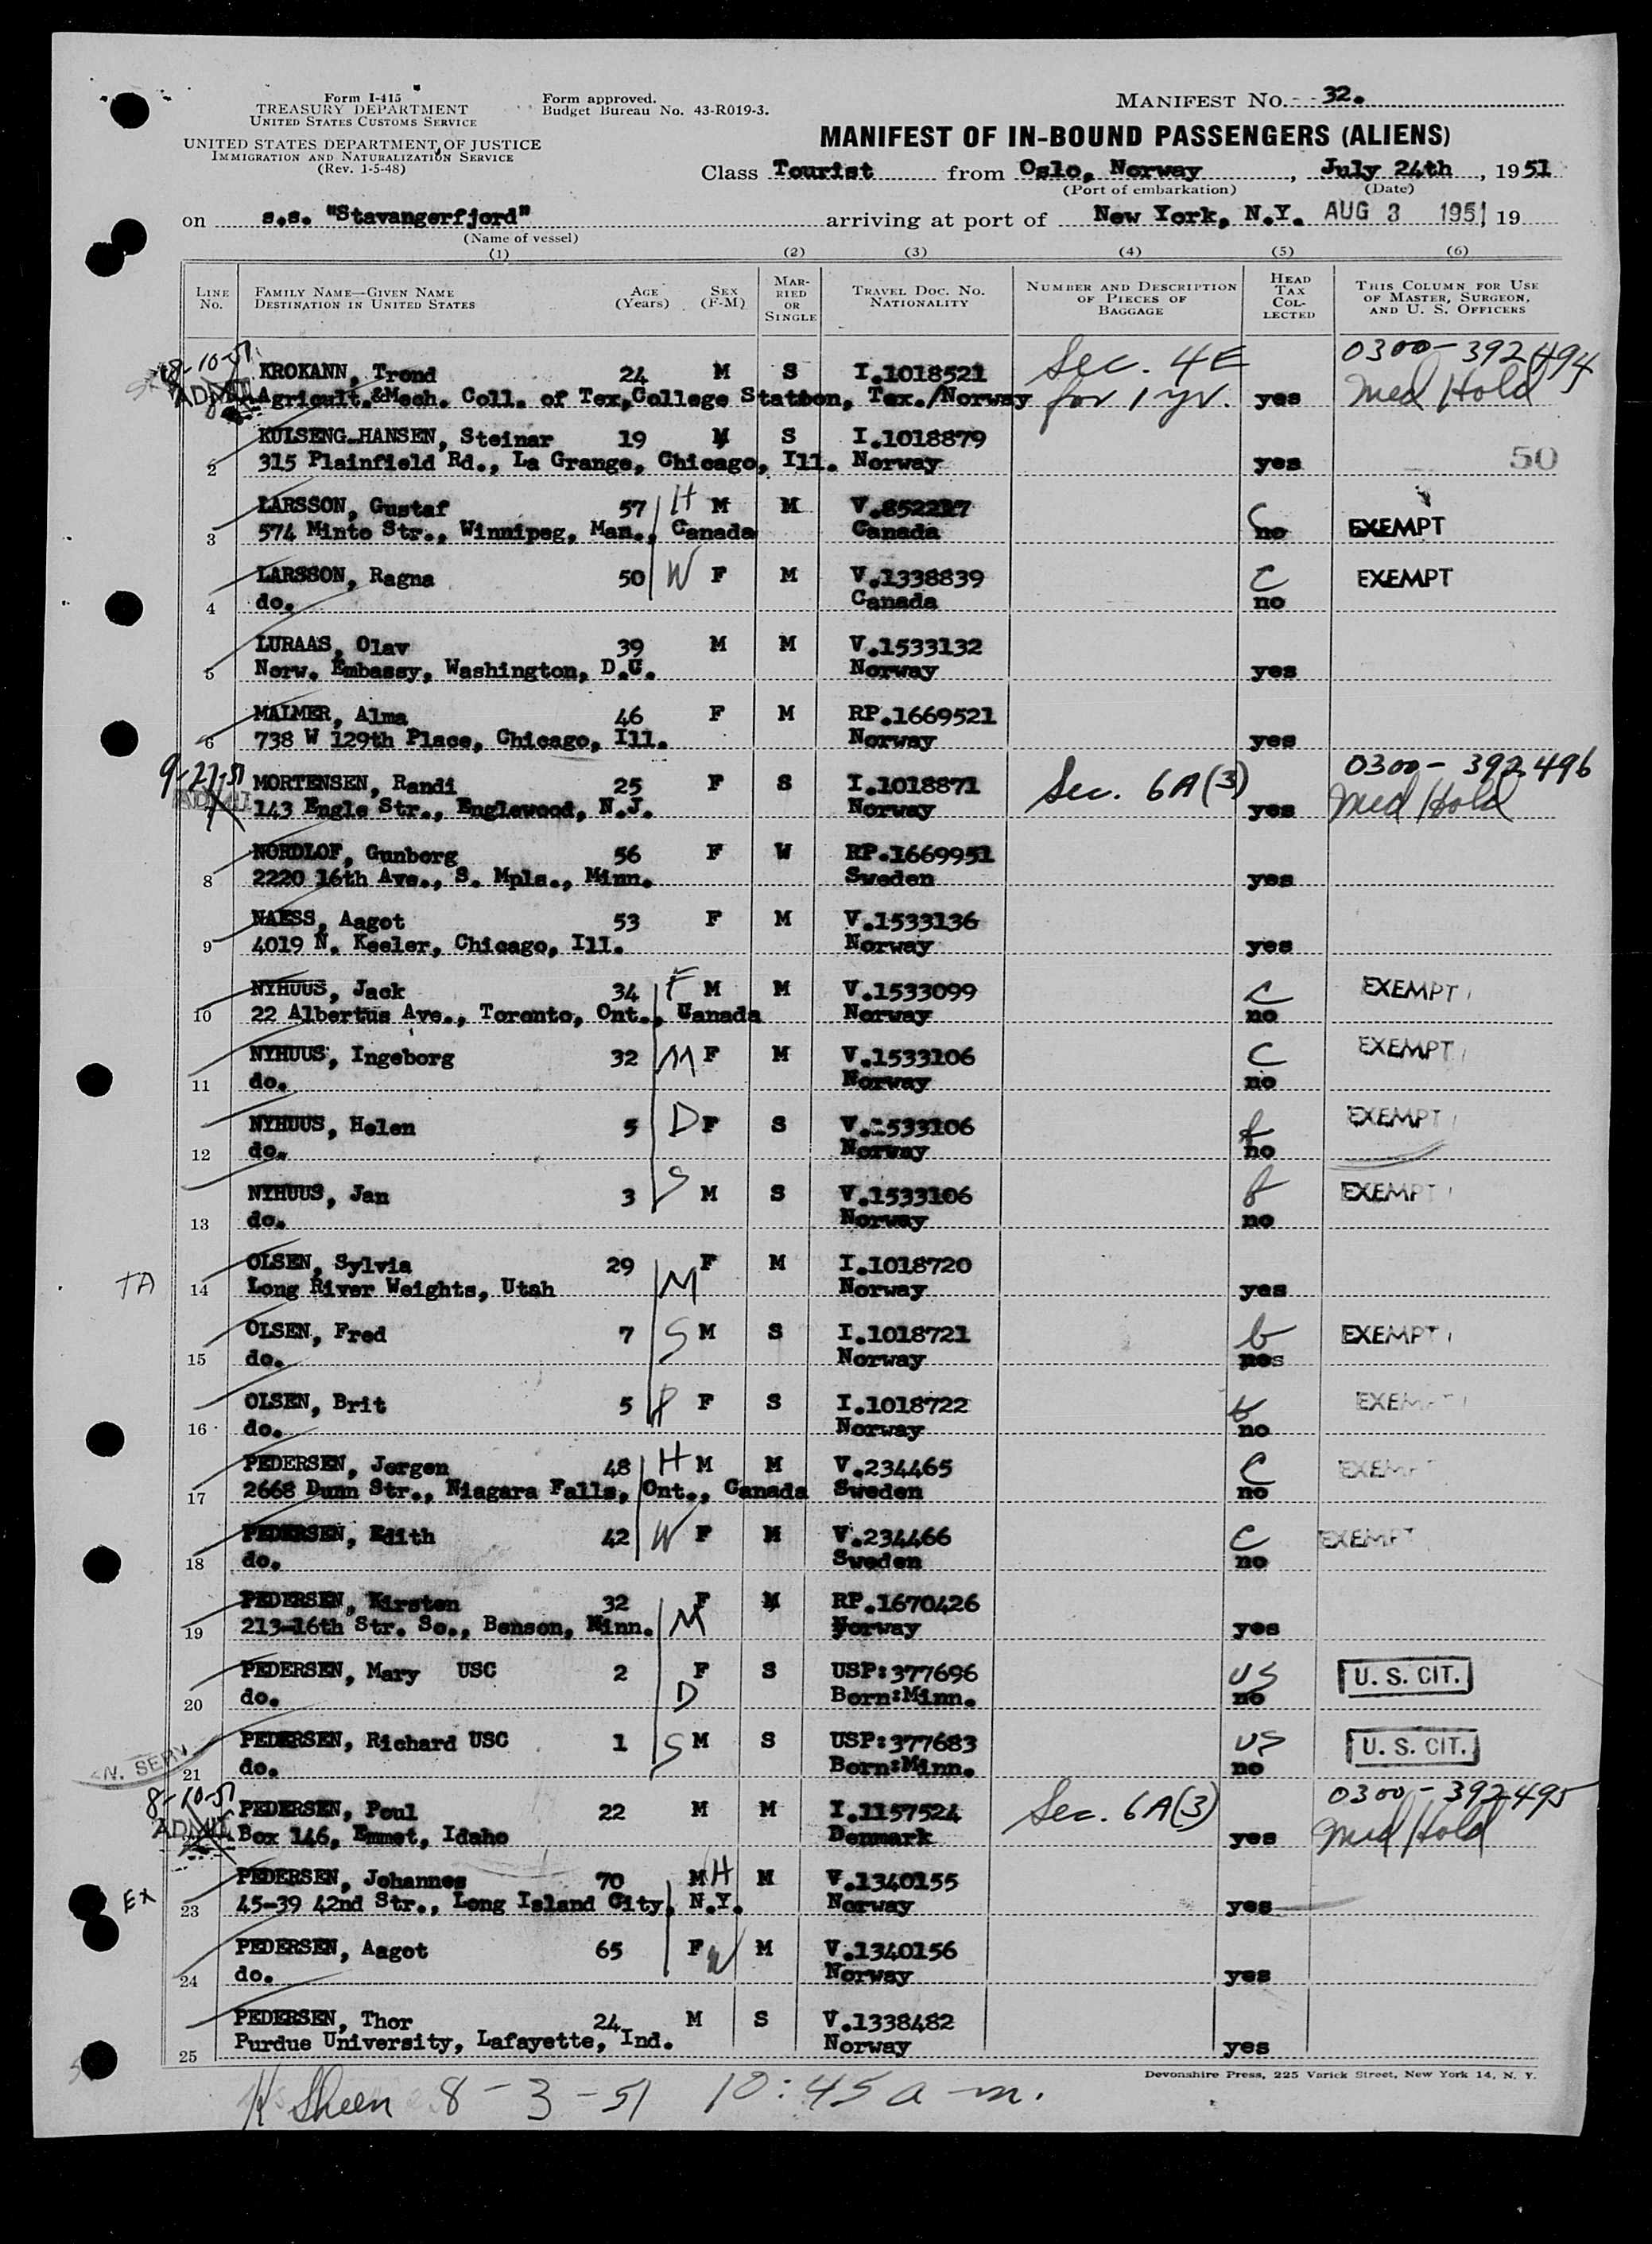 Form I-415
TREASURY DEPARTMENT
UNITED STATES CUSTOMS SERVICE
UNITED STATES DEPARTMENT OF JUSTICE
IMMIGRATION AND NATURALIZATION SERVICE
(Rev. 1-5-48)
Form approved.
Budget Bureau No. 43-R019-3.
MANIFEST NO. 32.
MANIFEST OF IN-BOUND PASSENGERS (ALIENS)
Class Tourist from Oslo, Norway, July 24th, 1951
(Port of embarkation) (Date)
on s.s. "Stavangerfjord" arriving at port of New York, N.Y. AUG 3 1951 19
(Name of vessel)
(1) (2) (3) (4) (5) (6)
LINE NO. FAMILY NAME—GIVEN NAME DESTINATION IN UNITED STATES AGE (Years) SEX (F-M) MARRIED OR SINGLE TRAVEL DOC. NO. NATIONALITY NUMBER AND DESCRIPTION OF PIECES OF BAGGAGE HEAD TAX COLLECTED THIS COLUMN FOR USE OF MASTER, SURGEON, AND U. S. OFFICERS
8-10-51 KROKANN, Trond 24 M S I.1018521 Sec. 4E 0300-392494
ADMI Agricult.&Mech. Coll. of Tex,College Station, Tex./Norway for 1 yr. yes Med Hold
KULSENG-HANSEN, Steinar 19 M S I.1018879
2 315 Plainfield Rd., La Grange, Chicago, Ill. Norway yes 50
LARSSON, Gustaf 57 H M M V.852217 C
3 574 Minto Str., Winnipeg, Man., Canada Canada no EXEMPT
LARSSON, Ragna 50 W F M V.1338839 C EXEMPT
4 do. Canada no
LURAAS, Olav 39 M M V.1533132
5 Norw. Embassy, Washington, D.C. Norway yes
MALMER, Alma 46 F M RP.1669521
6 738 W 129th Place, Chicago, Ill. Norway yes
9-27-51 MORTENSEN, Randi 25 F S I.1018871 Sec. 6A(3) 0300-392496
ADMI 143 Engle Str., Englewood, N.J. Norway yes Med Hold
NORDLOF, Gunborg 56 F W RP.1669951
8 2220 16th Ave., S. Mpls., Minn. Sweden yes
NAESS, Aagot 53 F M V.1533136
9 4019 N. Keeler, Chicago, Ill. Norway yes
NYHUUS, Jack 34 F M M V.1533099 C EXEMPT
10 22 Albertus Ave., Toronto, Ont., Canada Norway no
NYHUUS, Ingeborg 32 M F M V.1533106 C EXEMPT
11 do. Norway no
NYHUUS, Helen 5 D F S V.1533106 EXEMPT
12 do. Norway no
NYHUUS, Jan 3 S M S V.1533106 EXEMPT
13 do. Norway no
OLSEN, Sylvia 29 F M I.1018720
TA 14 Long River Weights, Utah M Norway yes
OLSEN, Fred 7 S M S I.1018721 b EXEMPT
15 do. Norway
OLSEN, Brit 5 F S I.1018722 b EXEMPT
16 do. Norway no
PEDERSEN, Jorgen 48 H M M V.234465 C EXEMPT
17 2668 Dunn Str., Niagara Falls, Ont., Canada Sweden no
PEDERSEN, Edith 42 W F M V.234466 C EXEMPT
18 do. Sweden no
PEDERSEN, Kirsten 32 F M RP.1670426
19 213-16th Str. So., Benson, Minn. M Norway yes
PEDERSEN, Mary USC 2 F S USP:377696 US U. S. CIT.
20 do. D Born:Minn. no
PEDERSEN, Richard USC 1 S M S USP:377683 US U. S. CIT.
21 do. Born:Minn. no
8-10-51 PEDERSEN, Poul 22 M M I.1157524 Sec. 6A(3) 0300-392495
ADMI Box 146, Emmet, Idaho Denmark yes Med Hold
PEDERSEN, Johannes 70 M H M V.1340155
EX 23 45-39 42nd Str., Long Island City, N.Y. Norway yes
PEDERSEN, Aagot 65 F W M V.1340156
24 do. Norway yes
PEDERSEN, Thor 24 M S V.1338482
25 Purdue University, Lafayette, Ind. Norway yes
Devonshire Press, 225 Varick Street, New York 14, N. Y.
K Sheen 8-3-51 10:45 a-m.